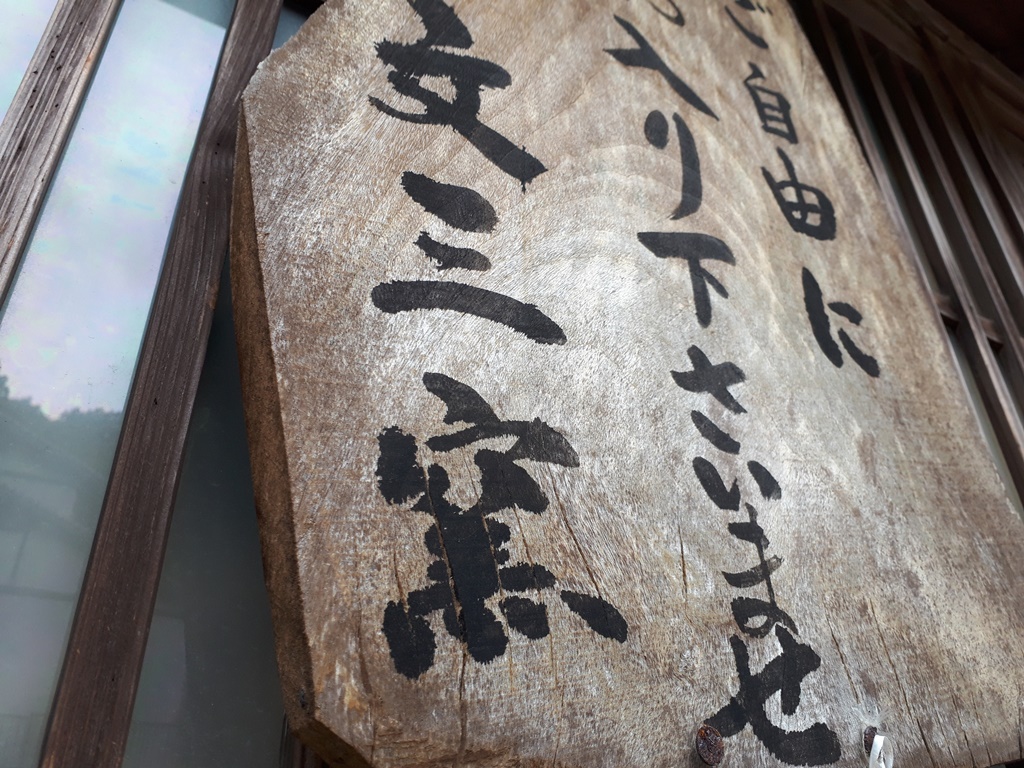 ご自由に
入り下さいませ
文三窯